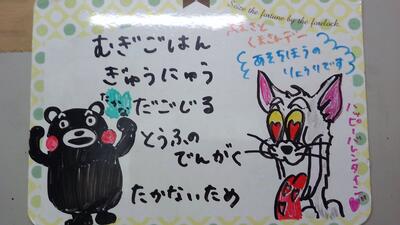 Seize the fortune by the forelock.
むぎごはん
ぎゅうにゅう
たかな
だごじる
とうふの
でんがく
たかないため
ふるさと
くまさんデー
あそちほうの
りょうりです
ハッピーバレンタイン